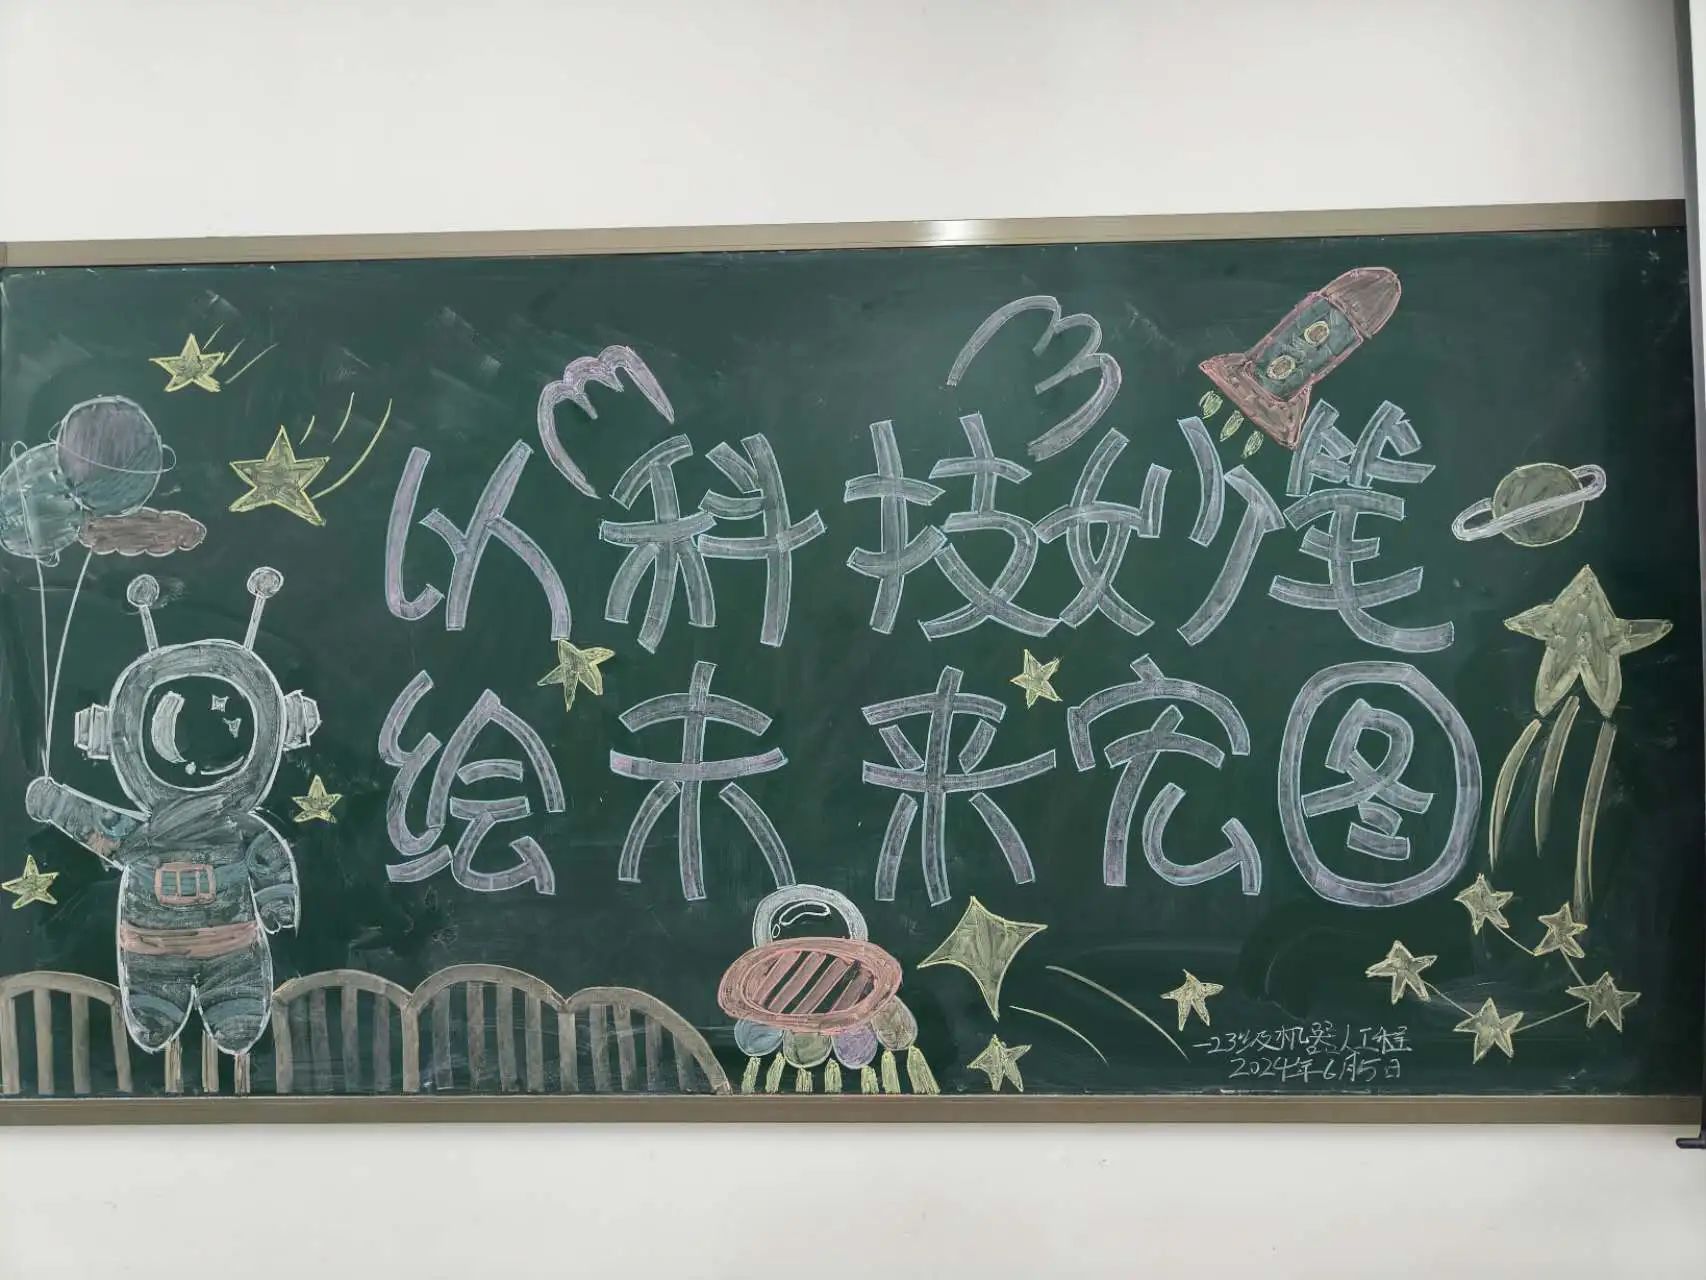 以科技妙笔
绘未来宏图
-23级机器人工程
2024年6月5日